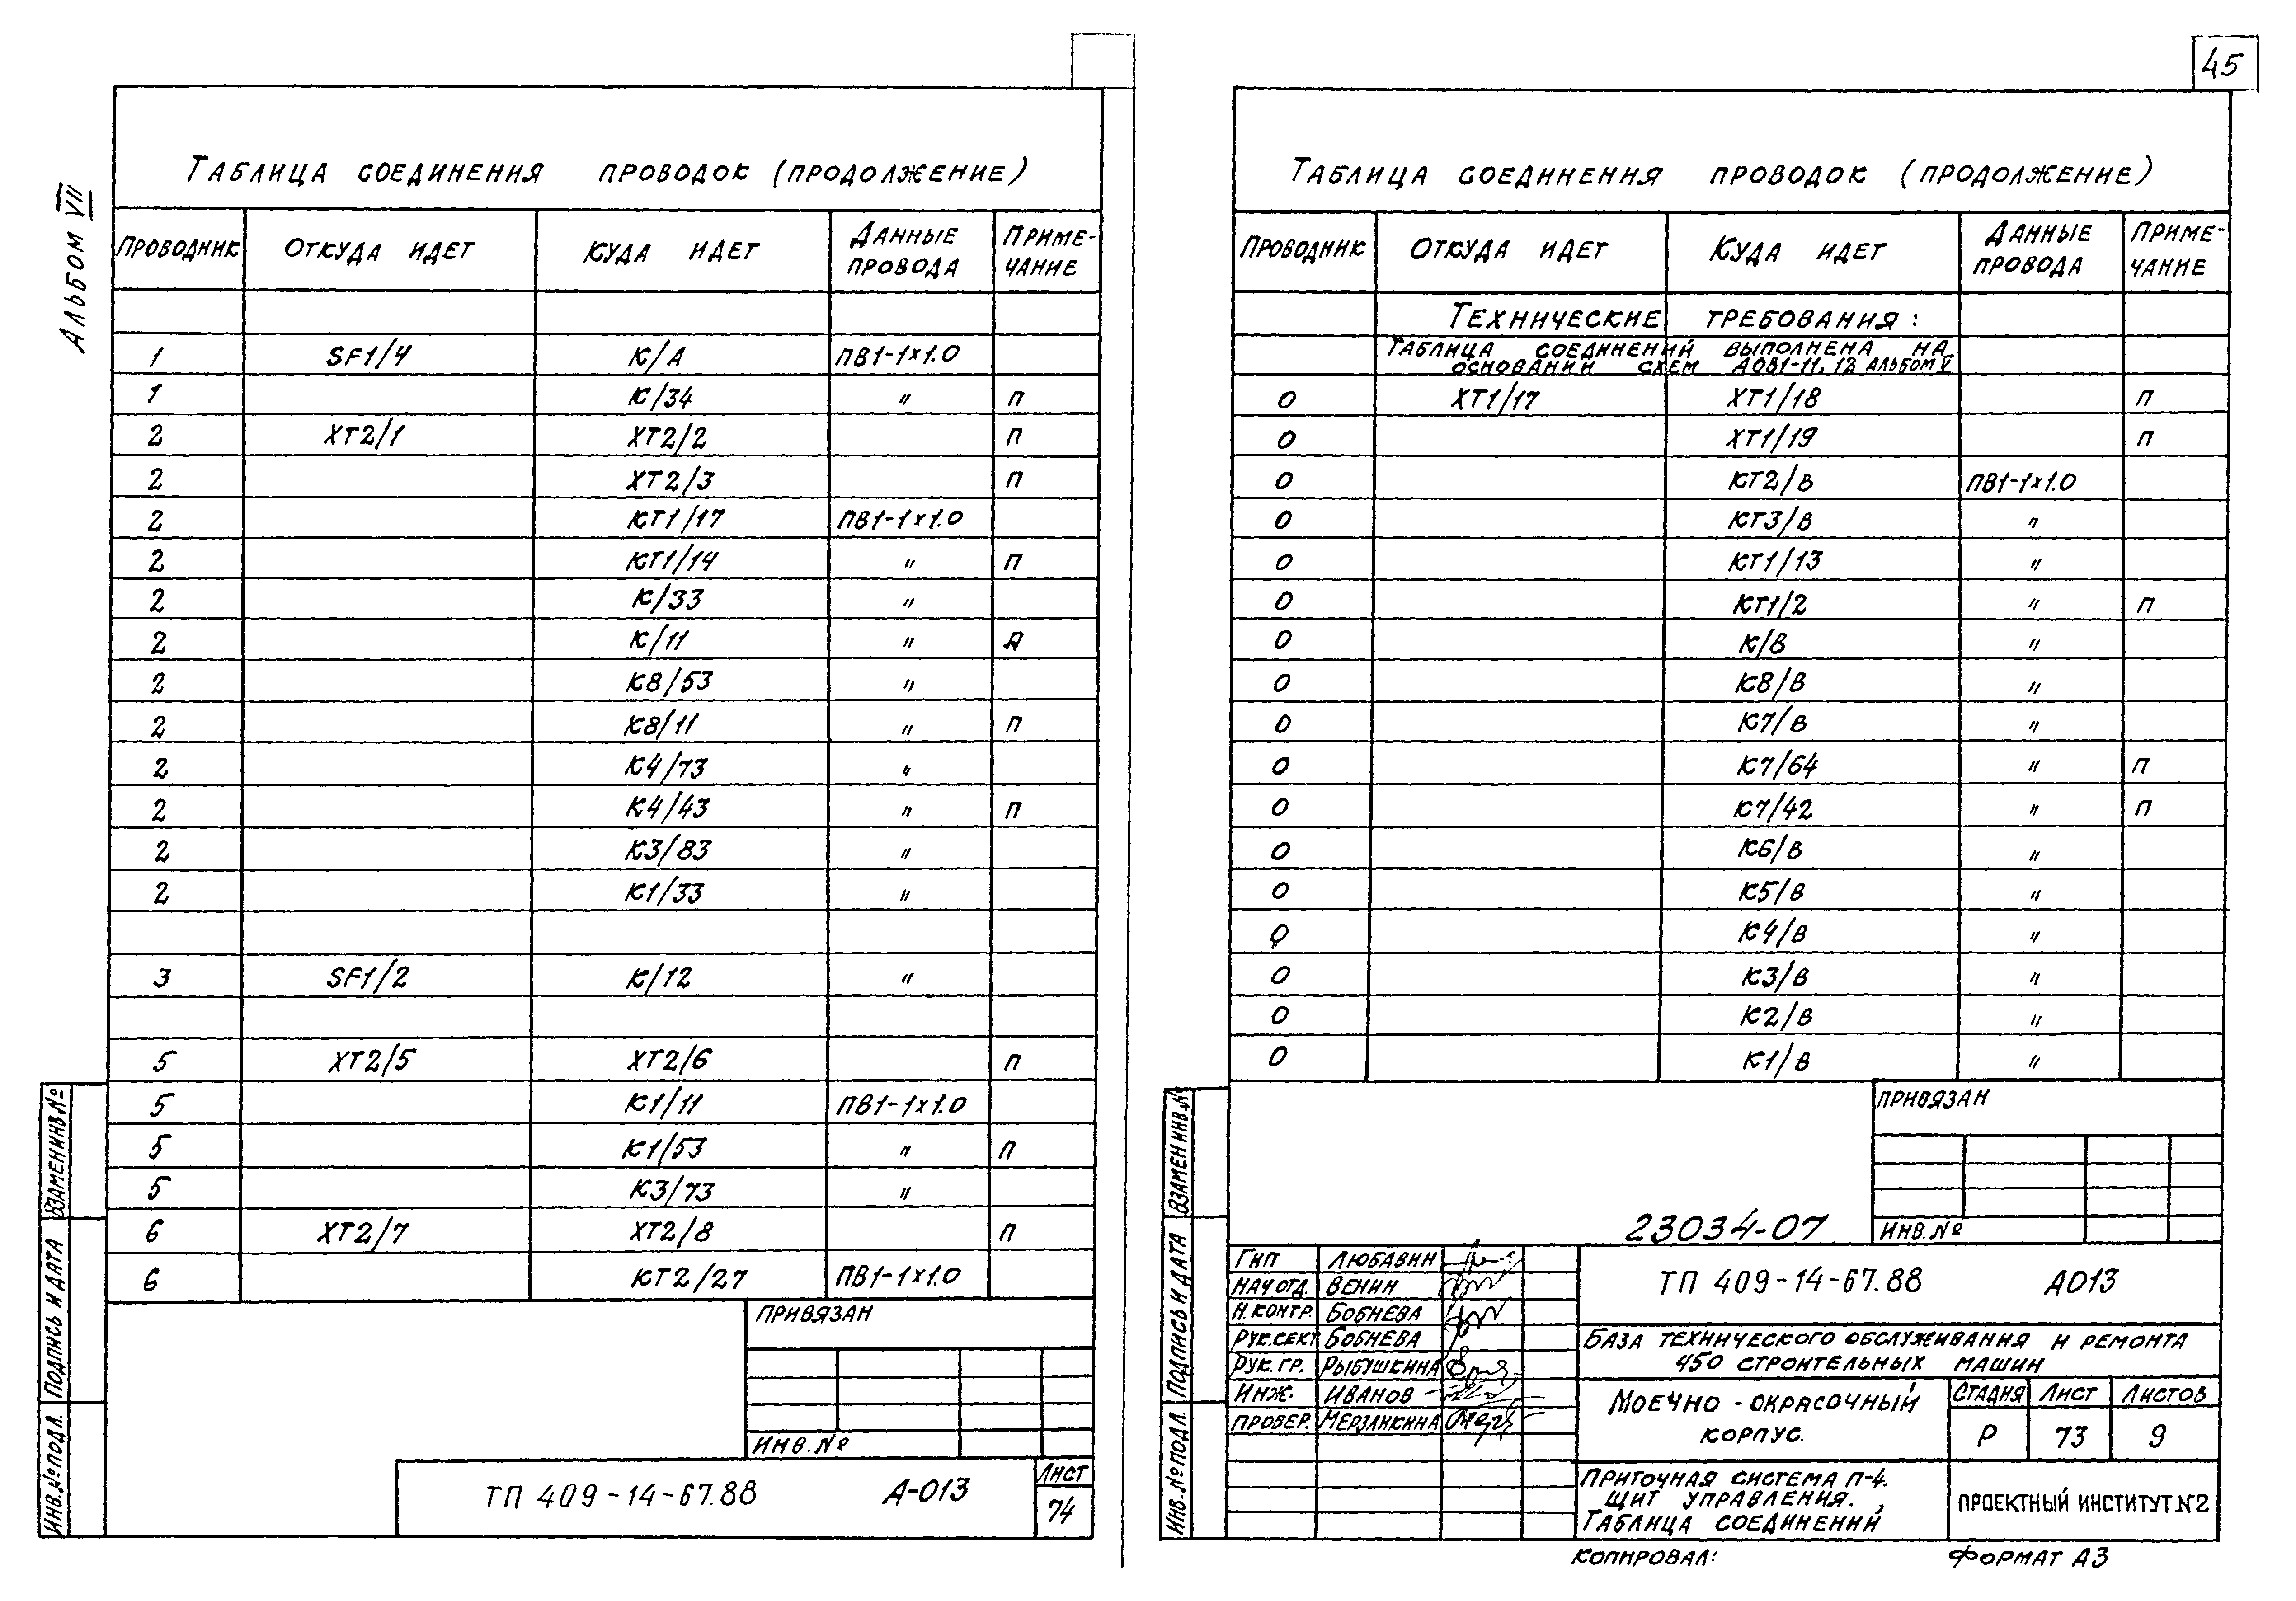 45
Альбом VII
Таблица соединения проводок (продолжение)
Проводник Откуда идет Куда идет Данные провода Приме-чание
1 SF1/4 К/А ПВ1-1х1.0
1 К/34 " п
2 ХТ2/1 ХТ2/2 п
2 ХТ2/3 п
2 КТ1/17 ПВ1-1х1.0
2 КТ1/14 " п
2 К/33 "
2 К/11 "
2 К8/53 "
2 К8/11 " п
2 К4/73 "
2 К4/43 " п
2 К3/83 "
2 К1/33 "
3 SF1/2 К/12 "
5 ХТ2/5 ХТ2/6 п
5 К1/11 ПВ1-1х1.0
5 К1/53 " п
5 К3/73 "
6 ХТ2/7 ХТ2/8 п
6 КТ2/27 ПВ1-1х1.0
Привязан
Инв.№
ТП 409-14-67.88 А-013
Лист
74
Взамен инв.№
Подпись и дата
Инв.№ подл.
Таблица соединения проводок (продолжение)
Проводник Откуда идет Куда идет Данные провода Приме-чание
Технические требования:
Таблица соединений выполнена на
основании схем АОВ1-11, 12 альбом V
0 ХТ1/17 ХТ1/18 п
0 ХТ1/19 п
0 КТ2/В ПВ1-1х1.0
0 КТ3/В "
0 КТ1/13 "
0 КТ1/2 " п
0 К/В "
0 К8/В "
0 К7/В "
0 К7/64 " п
0 К7/42 " п
0 К6/В "
0 К5/В "
0 К4/В "
0 К3/В "
0 К2/В "
0 К1/В "
Привязан
Инв.№
23034-07
Гип Любавин
Нач отд. Венин
Н.контр. Бобнева
Рук.сект Бобнева
Рук.гр. Рыбушкина
Инж. Иванов
Провер. Мерзликина
ТП 409-14-67.88 А013
База технического обслуживания и ремонта
450 строительных машин
Моечно-окрасочный
корпус.
Стадия Лист Листов
Р 73 9
Приточная система П-4.
Щит управления.
Таблица соединений
Проектный институт №2
Взамен инв.№
Подпись и дата
Инв.№ подл.
Копировал:
Формат А3